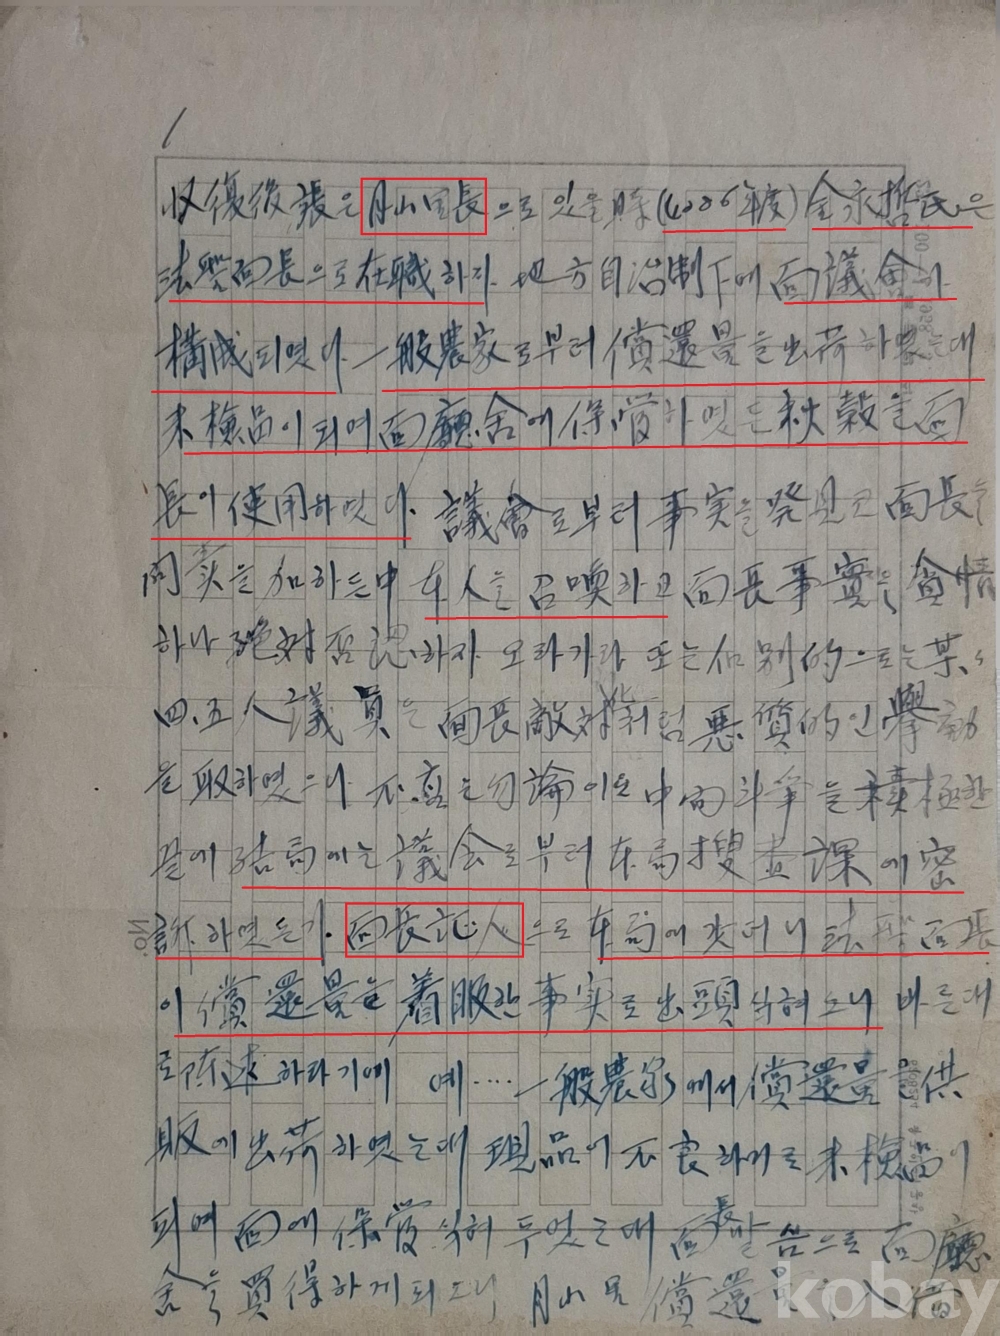 1
收復後 張은 月山面長으로 있을 時 (4286年度) 金永哲氏은
法聖面長으로 在職하자 地方自治制下에 面議會가
構成되엿다. 一般農家로부터 償還量을 出荷하엿는대
未檢品이 되여 面廳舍에 保管하엿든 秋穀을 面
長이 使用하엿다. 議會로부터 事実을 発見코 面長을
하든 中 本人을 召喚하고 面長事實을
하나 絶対否認하자 오라가라 또는 個別的으로는 某々
四.五人 議員은 面長敵対 처럼 悪質的인 擧動
을 取하엿으니 不 은 勿論이요 中 을 積極한
끝에 結局에는 議会로부터 本局搜査課에 密
訴하엿든가. 面長証人으로 本局에 갓더니 法聖面長
이 償還量을 着服한 事実로 出頭식혀스니 바른대
로 陳述하라기에 (예····一般農家에서 償還量을 供
販에 出荷하엿는대 現品이 不良하기로 未檢品이
되여 面에 保管식혀 두엇는대 面長말씀으로 面廳
舍을 買得하게 되스니 月山 償還 入
No.
kobay